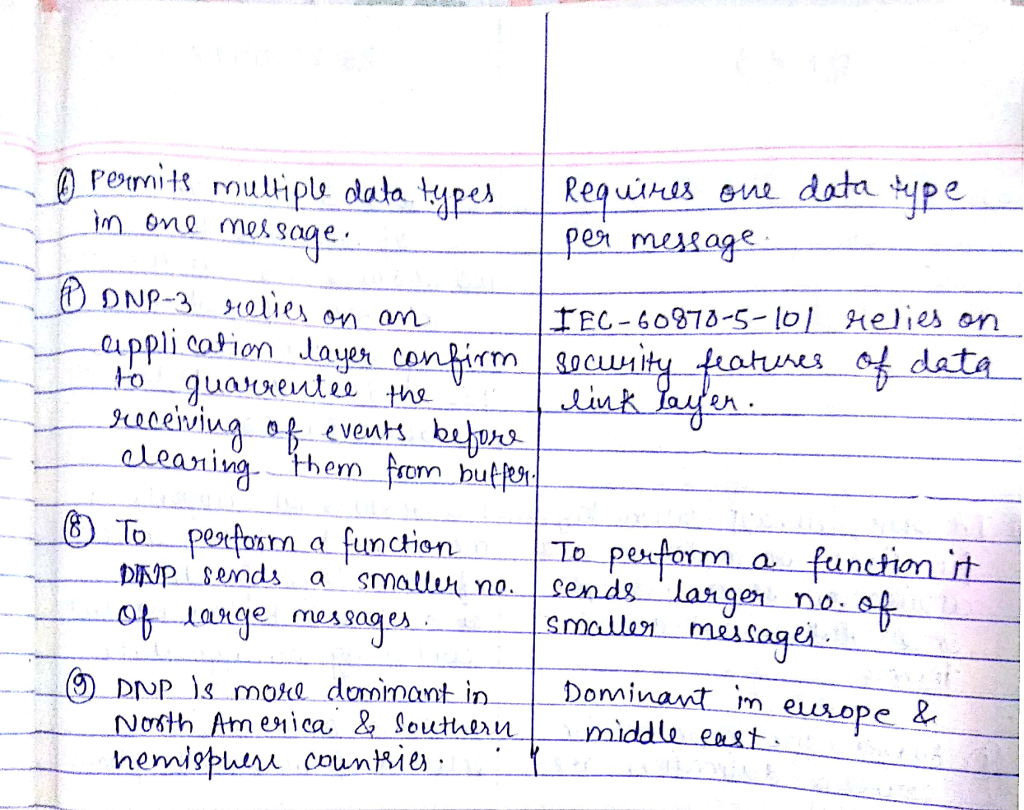 ⑥ Permits multiple data types
in one message.
Requires one data type
per message.
⑦ DNP-3 relies on an
application layer confirm
to guarrentee the
receiving of events before
clearing them from buffer.
IEC-60870-5-101 relies on
security features of data
link layer.
⑧ To perform a function
DNP sends a smaller no.
of large messages.
To perform a function it
sends larger no. of
smaller messages.
⑨ DNP is more dominant in
North America & Southern
hemisphere countries.
Dominant in europe &
middle east.